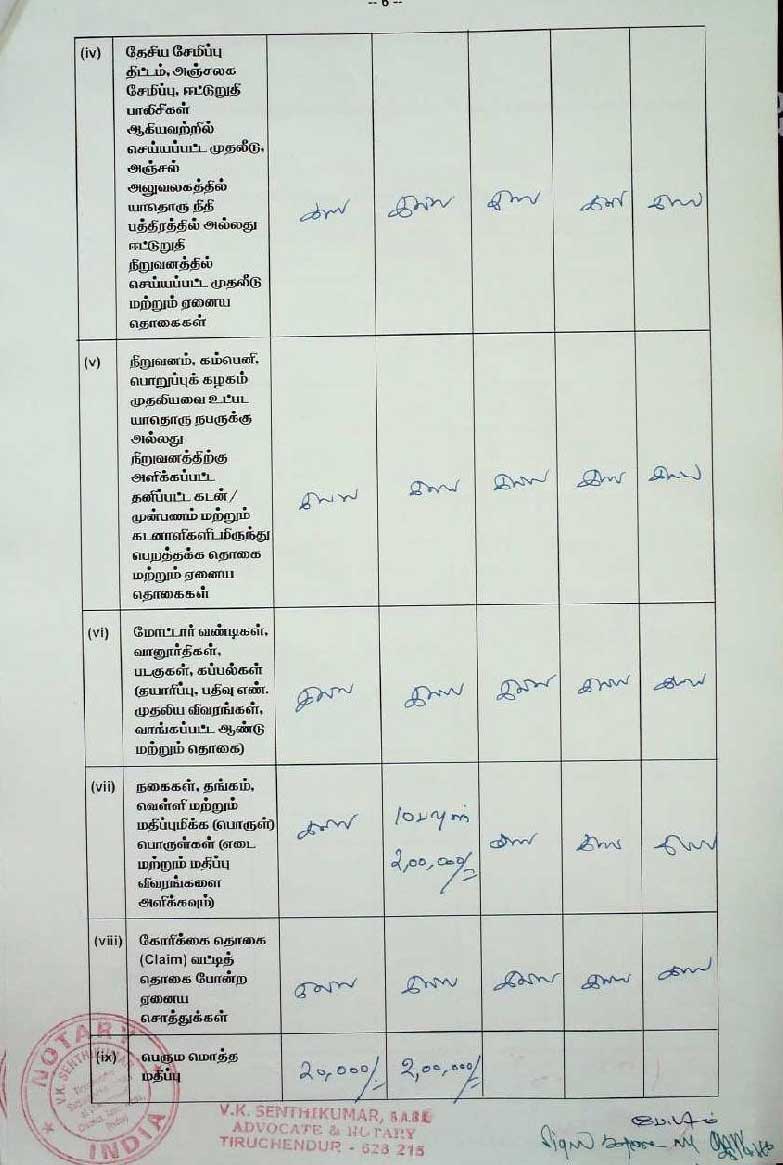 -- 6 --
(iv) தேசிய சேமிப்பு
திட்டம், அஞ்சலக
சேமிப்பு, ஈட்டுறுதி
பாலிசிகள்
ஆகியவற்றில்
செய்யப்பட்ட முதலீடு,
அஞ்சல்
அலுவலகத்தில்
யாதொரு நிதி
பத்திரத்தில் அல்லது
ஈட்டுறுதி
நிறுவனத்தில்
செய்யப்பட்ட முதலீடு
மற்றும் ஏனைய
தொகைகள்
இல்லை இல்லை இல்லை இல்லை இல்லை
(v) நிறுவனம், கம்பெனி,
பொறுப்புக் கழகம்
முதலியவை உட்பட
யாதொரு நபருக்கு
அல்லது
நிறுவனத்திற்கு
அளிக்கப்பட்ட
தனிப்பட்ட கடன் /
முன்பணம் மற்றும்
கடனாளிகளிடமிருந்து
பெறத்தக்க தொகை
மற்றும் ஏனைய
தொகைகள்
இல்லை இல்லை இல்லை இல்லை இல்லை
(vi) மோட்டார் வண்டிகள்,
வானூர்திகள்,
படகுகள், கப்பல்கள்
(தயாரிப்பு, பதிவு எண்.
முதலிய விவரங்கள்,
வாங்கப்பட்ட ஆண்டு
மற்றும் தொகை)
இல்லை இல்லை இல்லை இல்லை இல்லை
(vii) நகைகள், தங்கம்,
வெள்ளி மற்றும்
மதிப்புமிக்க (பொருள்)
பொருள்கள் (எடை
மற்றும் மதிப்பு
விவரங்களை
அளிக்கவும்)
இல்லை 10 பவுன் இல்லை இல்லை இல்லை
2,00,000/=
(viii) கோரிக்கை தொகை
(Claim) வட்டித்
தொகை போன்ற
ஏனைய
சொத்துக்கள்
இல்லை இல்லை இல்லை இல்லை இல்லை
(ix) பெரும மொத்த
மதிப்பு
20,000/= 2,00,000/=
NOTARY
V.K. SENTHIKUMAR
INDIA
V.K. SENTHIKUMAR, B.A.B.L
ADVOCATE & NOTARY
TIRUCHENDUR - 628 215